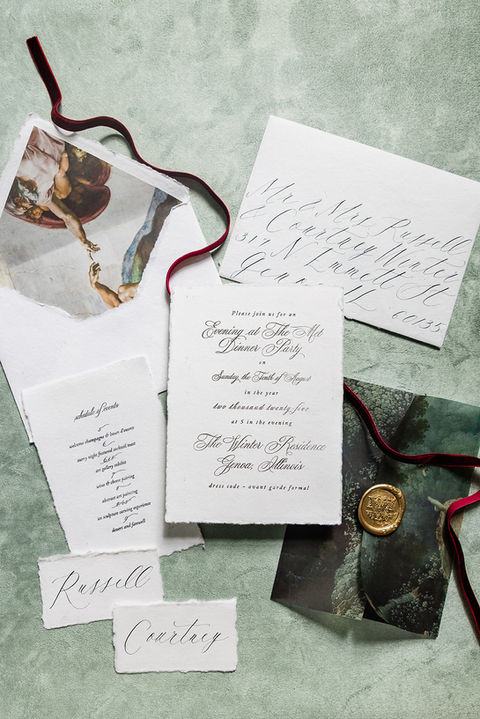 Mr. & Mrs. Russell
& Courtney Winter
317 N Emmett St
Genoa, IL
60135
Please join us for an
Evening at The Met
Dinner Party
on
Sunday, the Tenth of August
in the year
two thousand twenty-five
at 5 in the evening
The Winter Residence
Genoa, Illinois
dress code - avant garde formal
schedule of events
welcome champagne & hors d'oeuvres
starry night featured cocktail toast
art gallery exhibit
wine & cheese pairing
abstract art painting
sculpture carving experience
dessert and farewell
Russell
Courtney